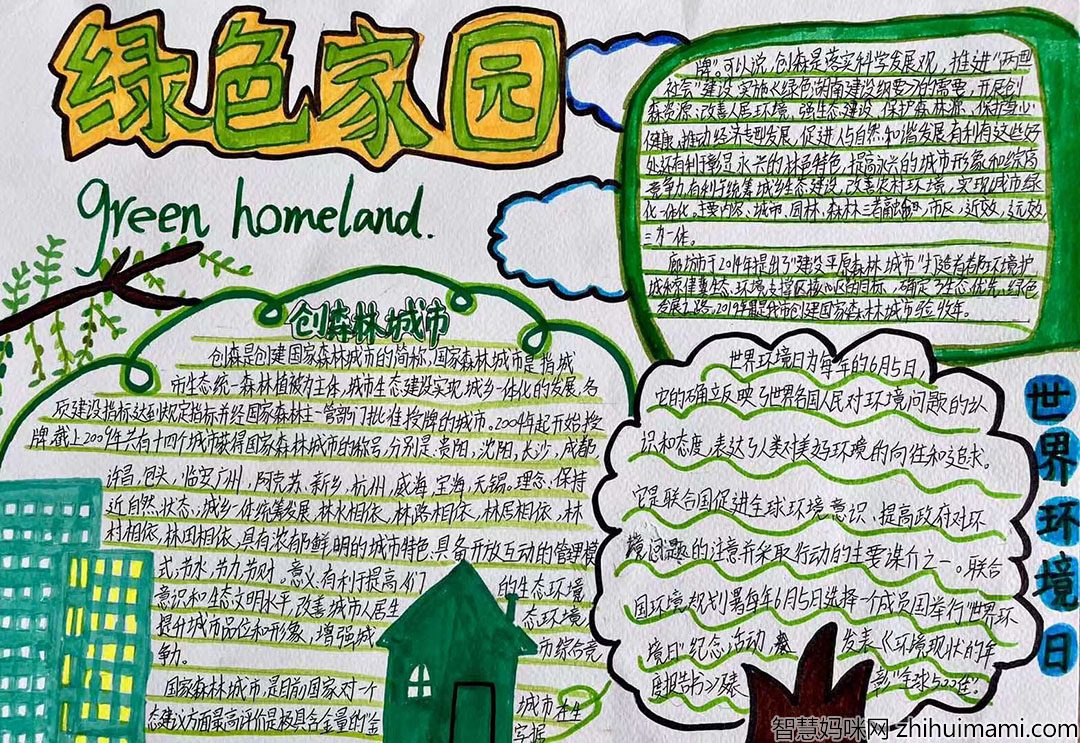 绿色家园
green homeland.
创森林城市
创森是创建国家森林城市的简称,国家森林城市是指城
市生态统一森林植被为主体,城市生态建设实现城乡一体化的发展,各
质建设指标达到规定指标并经国家森林主管部门批准授牌的城市。2004年起开始授
牌,截上2009年共有十四个城市获得国家森林城市的称号,分别是:贵阳,沈阳,长沙,成都,
许昌,包头,临安广州,阿克苏、新乡,杭州,威海,宝海,无锡。理念,保持
近自然,状态,城乡一体统筹发展,林水相依,林路相依,林居相依,林
村相依,林田相依,具有浓郁鲜明的城市特色,具备开放互动的管理模
式,节水,节力节财。意义:有利于提高人们的生态环境
意识和生态文明水平,改善城市人居生态环境,
提升城市品位和形象,增强城市综合竞
争力。
国家森林城市,是目前国家对一个城市在生
态建议方面最高评价是极具含金量的"金
牌"。可以说,创森是落实科学发展观,推进"两型
社会"建设实施《绿色湖南建设纲要》的需要,开展创
森资源,改善人居环境,强生态建设,保护森林源,保护身心
健康,推动经济专型发展,促进人与自然和谐发展有利有这些好
处还有利于彰显永兴的林色特色,提高永兴的城市形象和综合
竞争力有利于统筹城乡生态建设,改善农村环境,实现城市绿
化一体化。主要内容、城市,园林、森林三者融合,市区,近效,远效
三为一体。
廊坊市于2014年提出了"建设平原森林城市"打造首都环境护
城,确定了生态优先、绿色
发展之路。2019年是我市创建国家森林城市验收年。
世界环境日为每年的6月5日,
它的确立反映了世界各国人民对环境问题的认
识和态度,表达了人类对美好环境的向往和追求。
它是联合国促进全球环境意识、提高政府对环
境问题的注意并采取行动的主要谋介之一。联合
国环境规划署每年6月5日选择一个成员国举行"世界环
境日"纪念活动,发表《环境现状的年
度报告书》及表彰"全球500佳"。
世界环境日
智慧妈咪网·zhihuimami.com